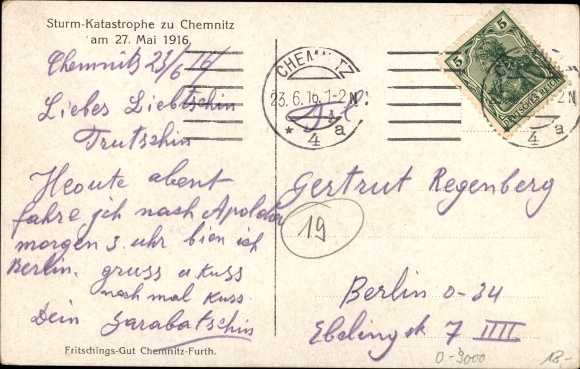 Sturm-Katastrophe zu Chemnitz
am 27. Mai 1916.
Chemnitz 23/6 16/
Liebes Liebtschin
Trutschin
Heoute abent
fahre ich nach Apolda
morgen 3. uhr bien ich
Berlin. gruss u Kuss
noch mal Kuss
Dein Sarabatschin
Fritschings-Gut Chemnitz-Furth.
CHEMNITZ
23.6.16. 1-2N.
* 4 a
5
5
DEUTSCHES REICH
2N
4 a
Gertrut Regenberg
19
Berlin O-34
Ebeling 7 IIII
O-9000
18.-